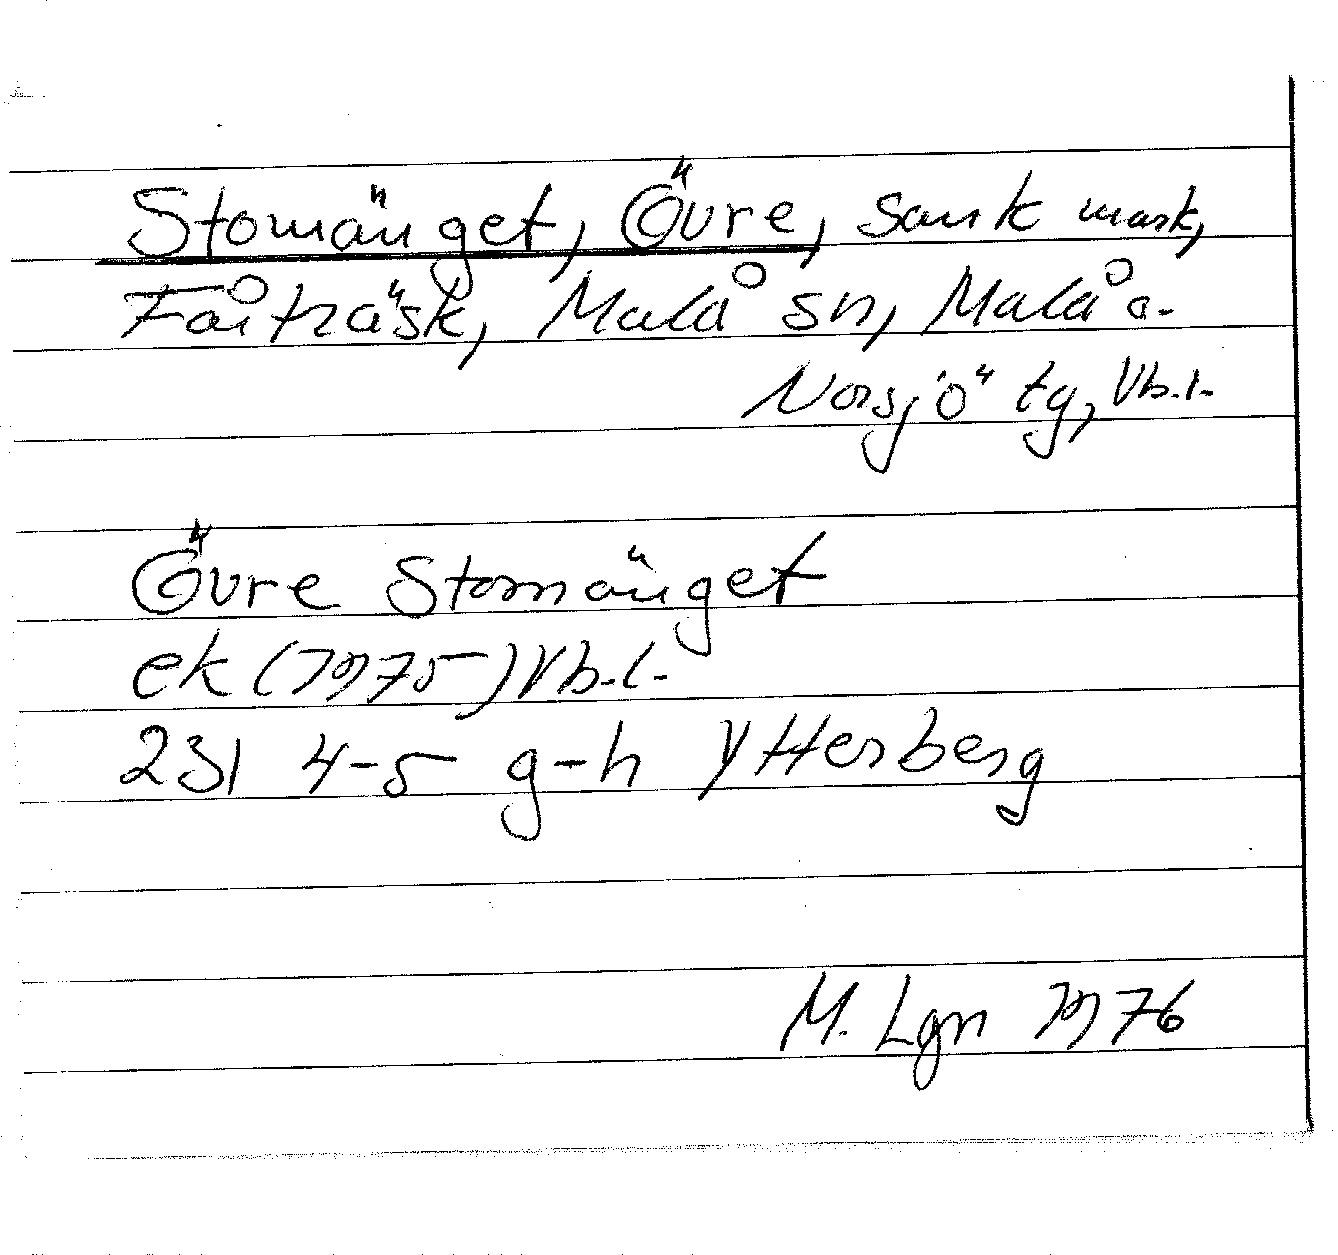 Stomänget, Övre, Sank mark,
Fårträsk, Malå sn, Malå o.
Norsjö tg, Vb.l.
Övre Stomänget
ek (1975) Vb.l.
23I 4-5 g-h Ytterberg
M. Lgn 1976